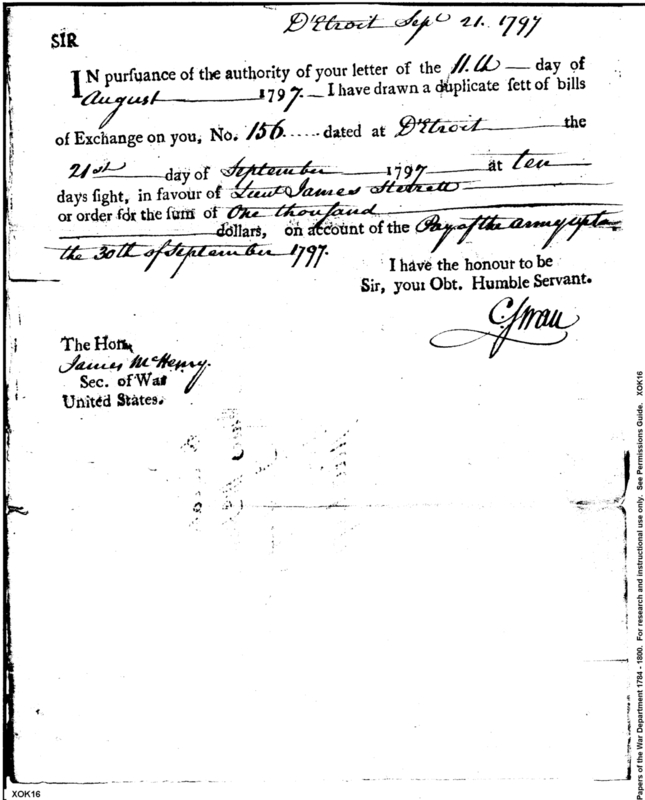 D'Etroit Sept 21. 1797
SIR
IN purſuance of the authority of your letter of the 11.th day of
August 1797. I have drawn a duplicate ſett of bills
of Exchange on you, No. 156 dated at D'Etroit the
21st day of September 1797 at ten
days ſight, in favour of Lieut James Sterrett
or order for the ſum of One thouſand
dollars, on account of the Pay of the army upto
the 30th of September 1797.
I have the honour to be
Sir, your Obt. Humble Servant.
C Swan
The Hon.
James McHenry.
Sec. of War
United States.
Papers of the War Department 1784 - 1800. For research and instructional use only. See Permissions Guide. XOK16
XOK16